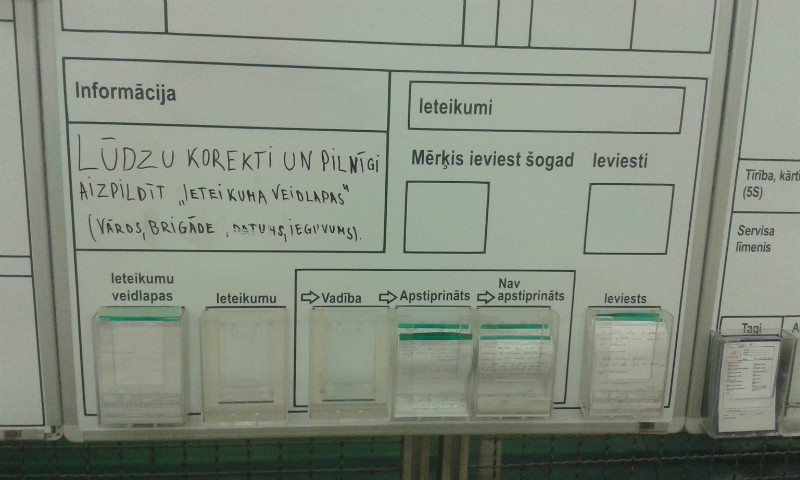 Informācija
LŪDZU KOREKTI UN PILNĪGI
AIZPILDĪT „IETEIKUMA VEIDLAPAS"
(VĀRDS, BRIGĀDE, DATUMS, IEGUVUMS).
Ieteikumi
Mērķis ieviest šogad
Ieviesti
Ieteikumu
veidlapas
Ieteikumu
Vadība
Apstiprināts
Nav
apstiprināts
Ieviests
Tīrība, kārti
(5S)
Servisa
līmenis
Tagi
A